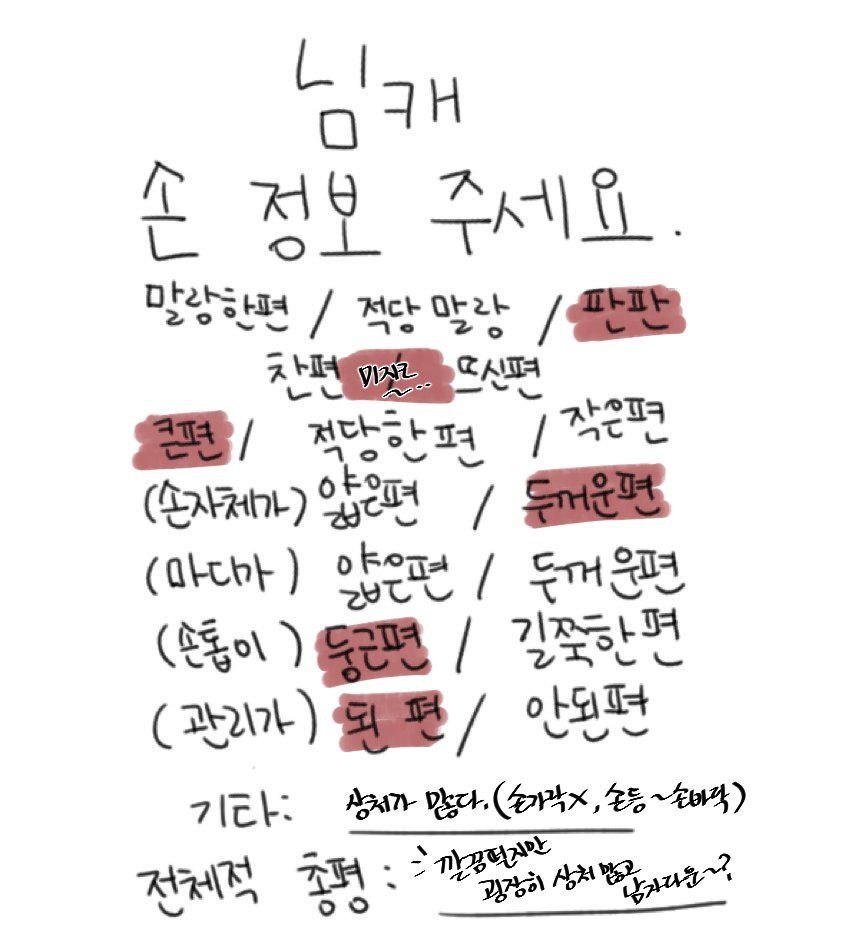 님캐
손 정보 주세요.
말랑한편 / 적당 말랑 / 판판
찬편 미지근~.. 뜨신편
큰편 / 적당한편 / 작은편
(손자체가) 얇은편 / 두꺼운편
(마디가) 얇은편 / 두꺼운편
(손톱이) 둥근편 / 길쭉한편
(관리가) 된 편 / 안된편
기타: 상처가 많다. (손가락X, 손등~손바닥)
전체적 총평: 깔끔펀지만
굉장히 상처 많고
남자다운~?